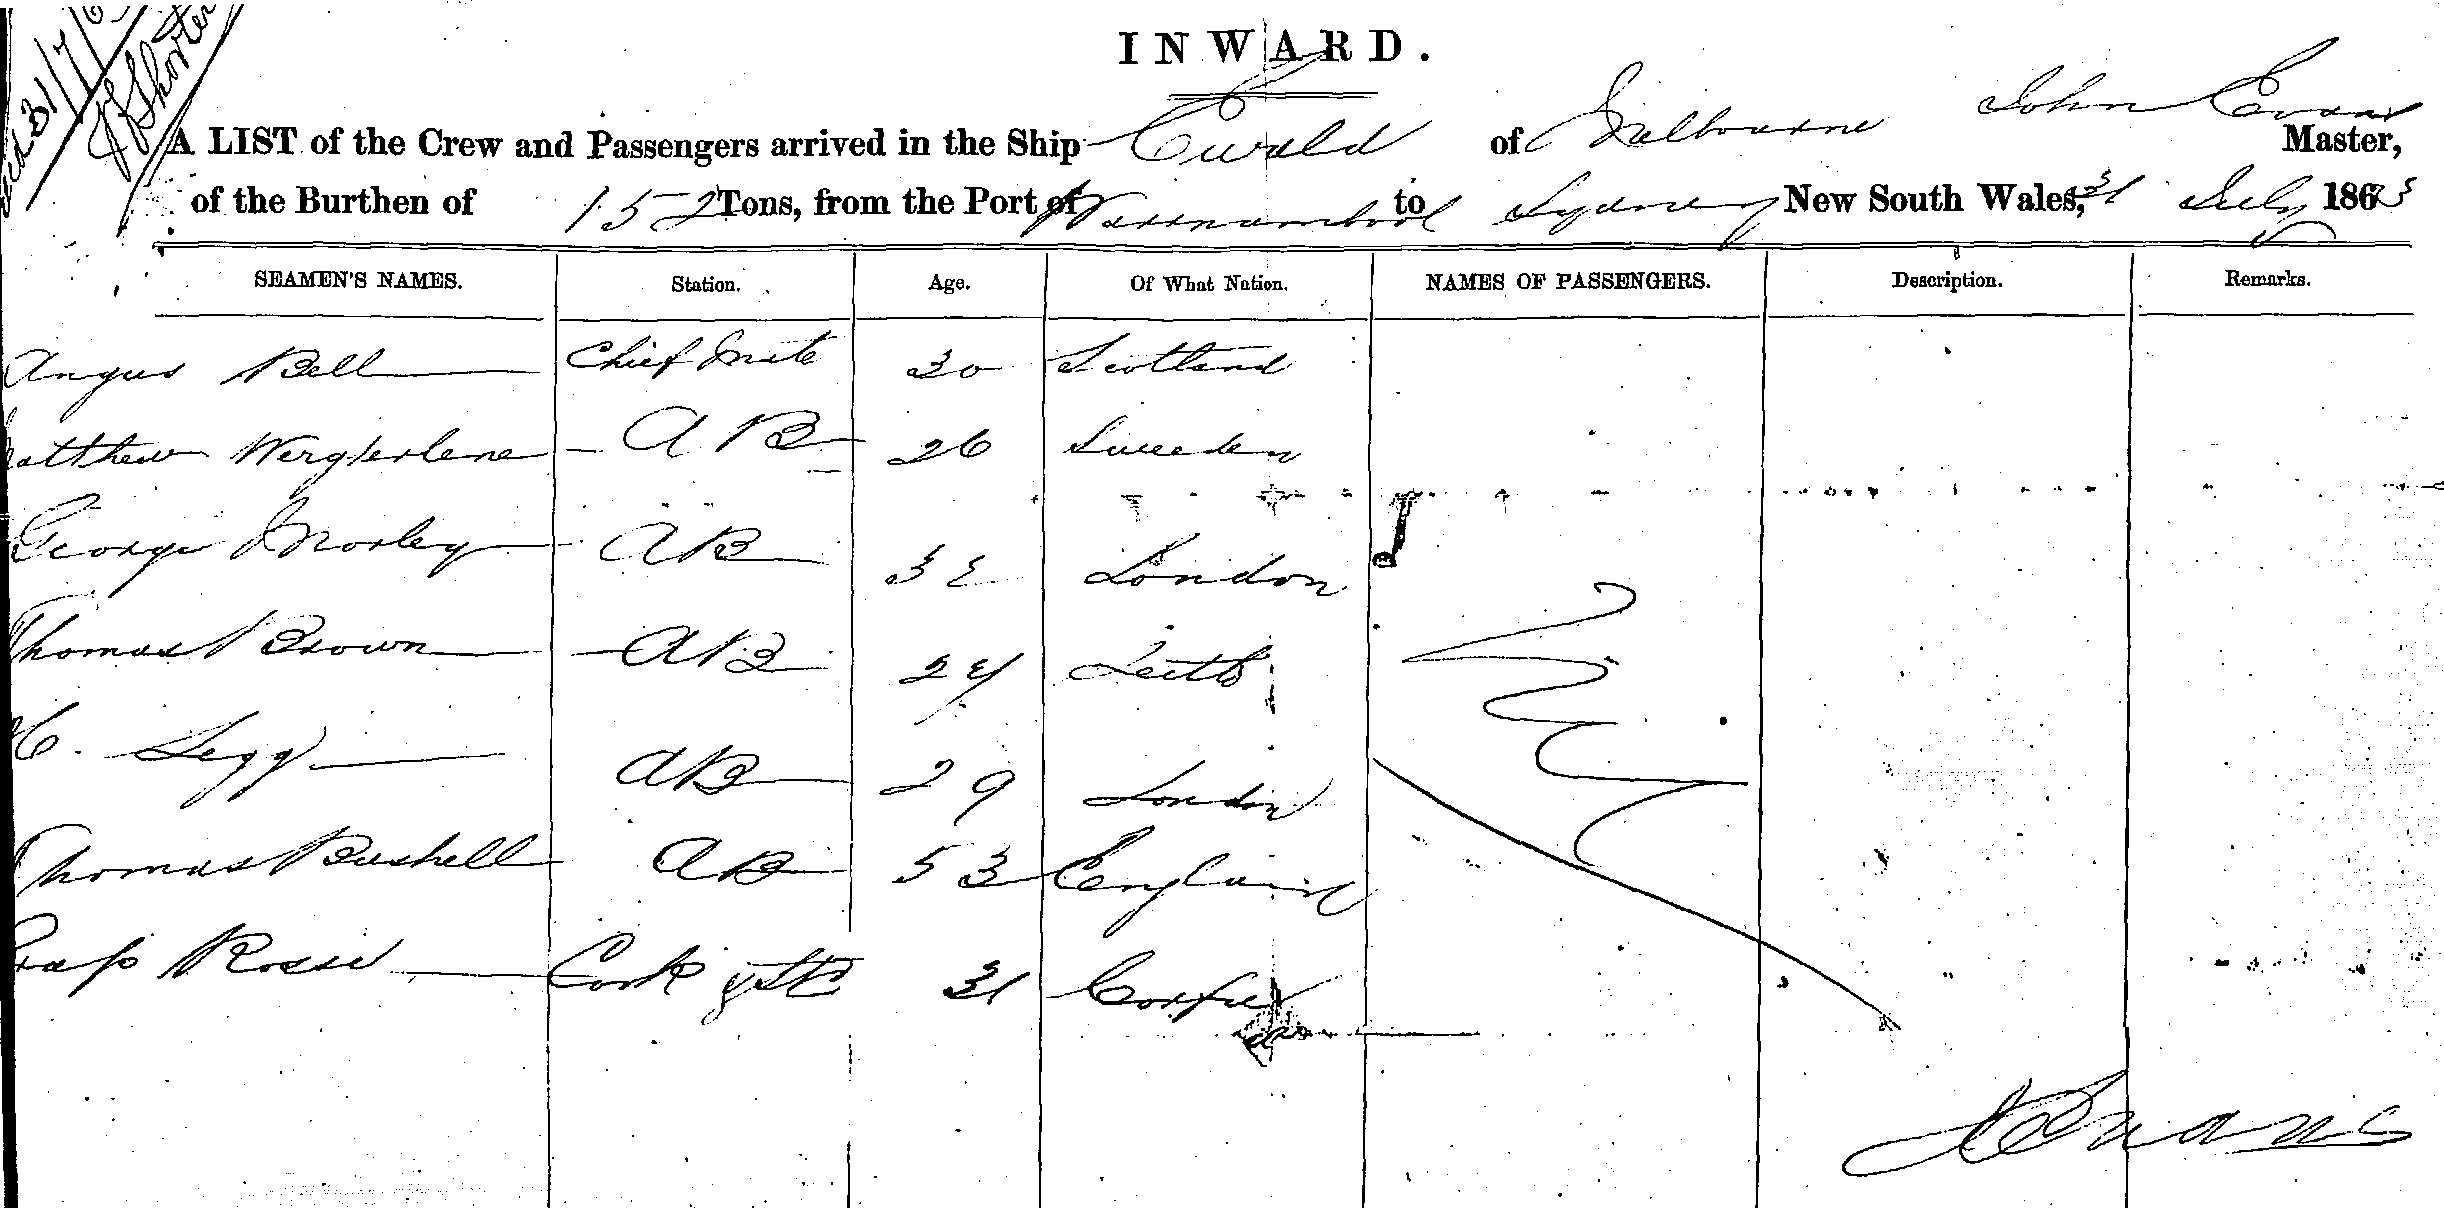 31/7/6
J Shorter
INWARD.
A LIST of the Crew and Passengers arrived in the Ship Ewald of Melbourne John Evans Master,
of the Burthen of 152 Tons, from the Port of Warrnambool to Sydney New South Wales, 31 July 1863
SEAMEN'S NAMES. Station. Age. Of What Nation. NAMES OF PASSENGERS. Description. Remarks.
Angus Bell Chief Mate 30 Scotland
Matthew AB 26 Sweeden
George Morley AB 32 London
Thomas Brown AB 24 Leith
Legg AB 29 London
Thomas Bushell AB 53 England
Rosse Cook & Std 31 Corfu
J Evans